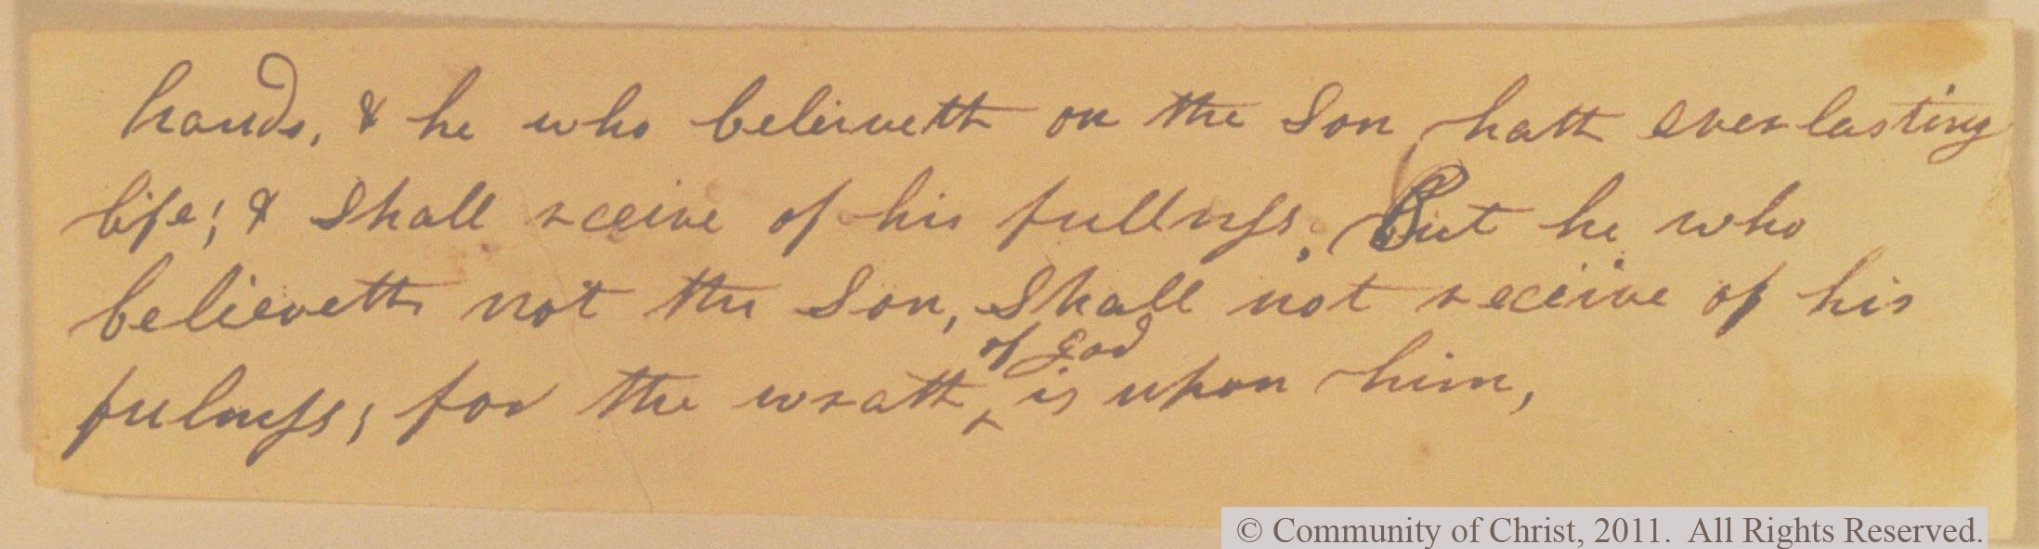 hands, & he who believeth on the Son hath everlasting
life; & shall receive of his fullness. But he who
believeth not the Son, shall not receive of his
of god
fulness; for the wrath ^ is upon him,
© Community of Christ, 2011. All Rights Reserved.